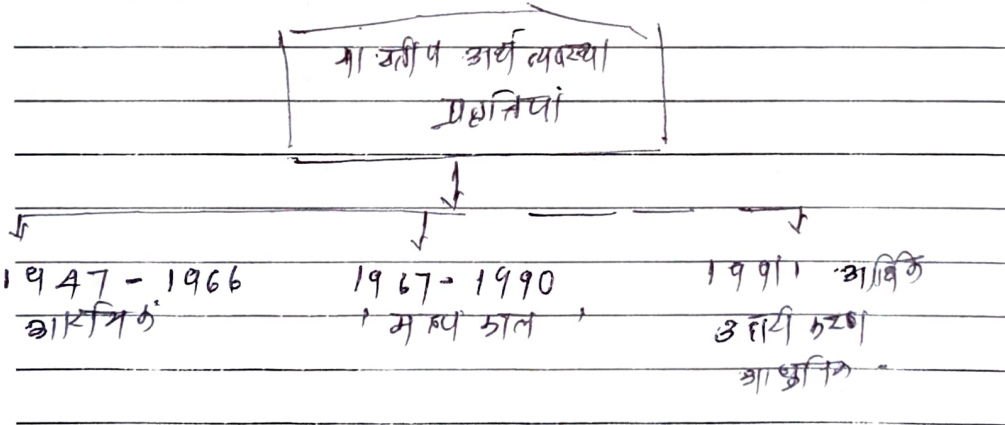 भारतीय अर्थव्यवस्था
प्रवृत्तियां
1947 - 1966
आरंभिक
1967 - 1990
' मध्य काल '
1991 आर्थिक
उदारीकरण
आधुनिक -